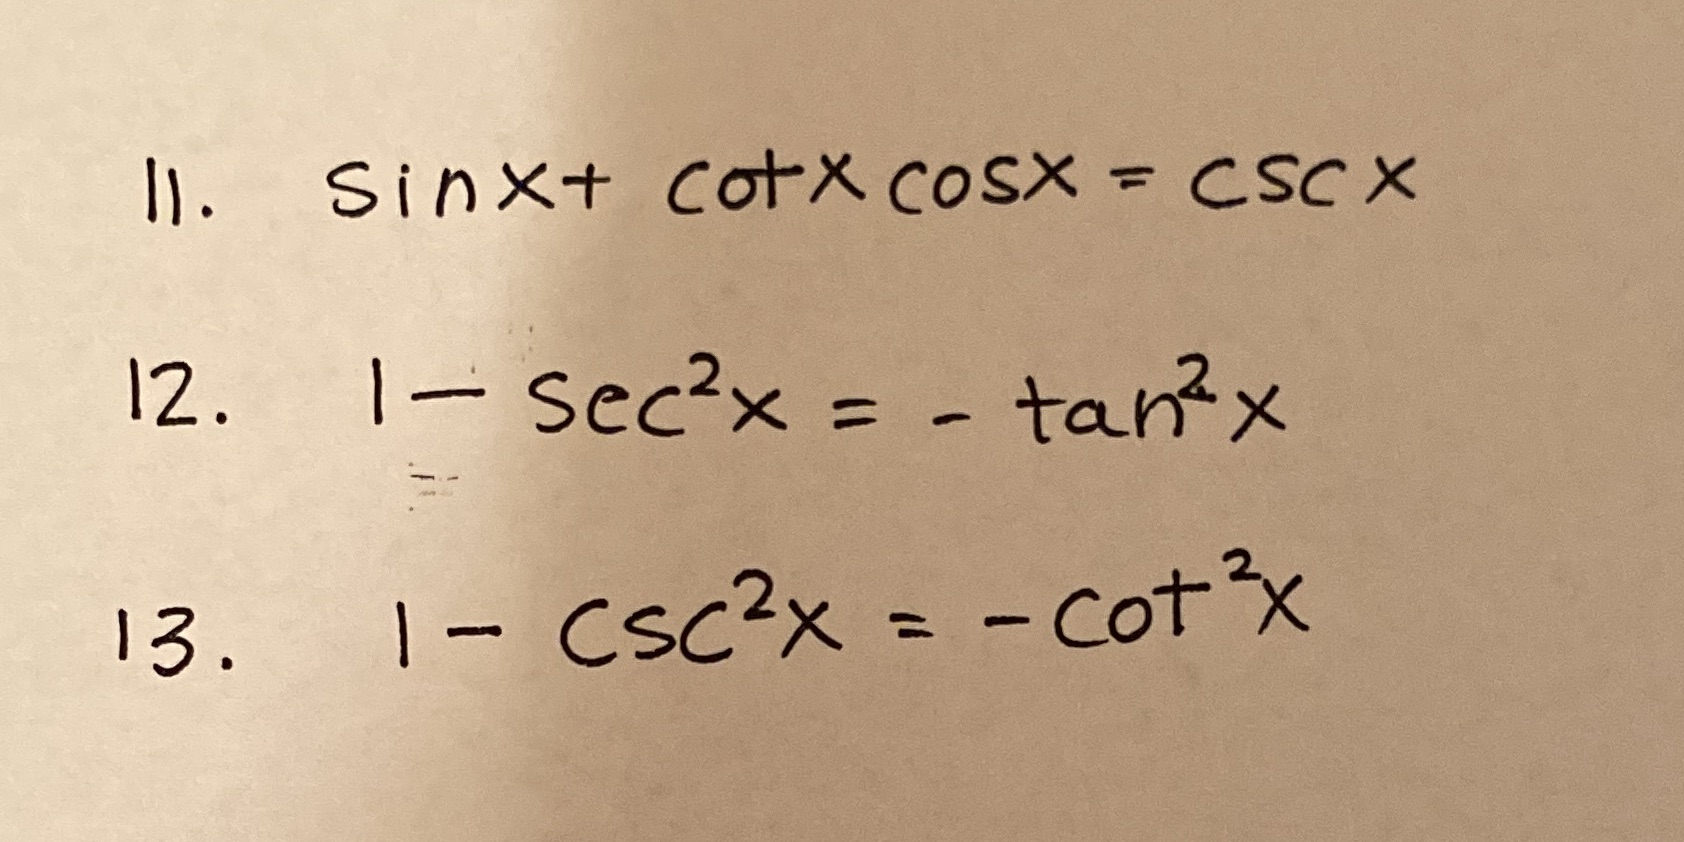 11. sinx + cotx cosx = cscx
12. 1 - sec²x = - tan²x
13. 1 - csc²x = - cot²x